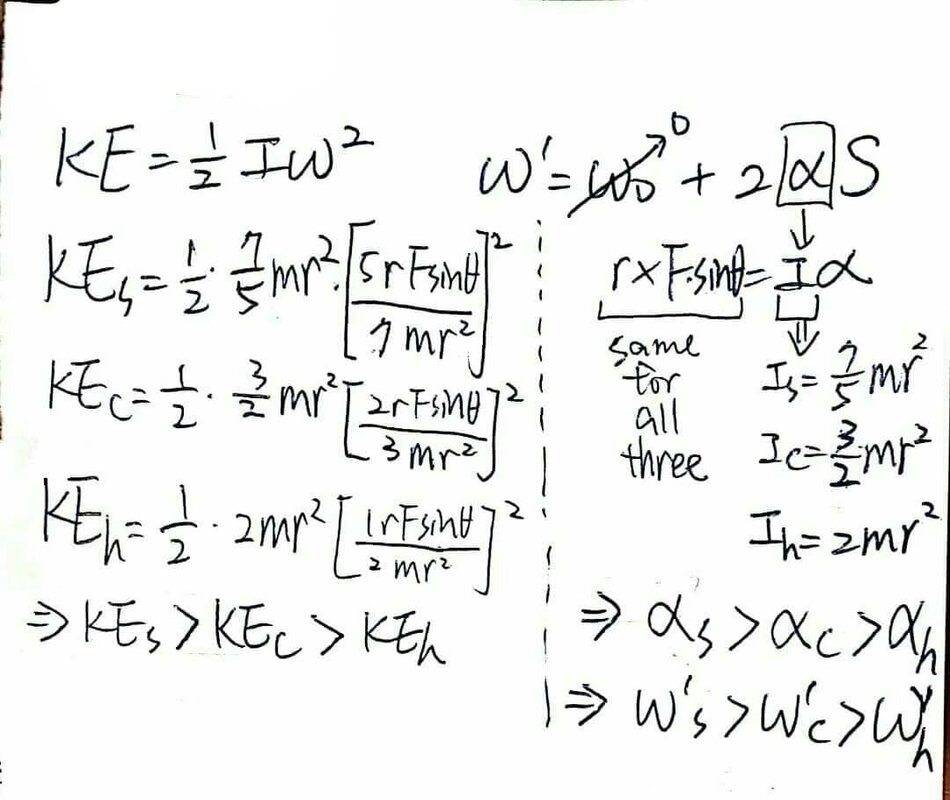 KE = 1/2 Iω²
KEs = 1/2 · 7/5 mr² · [5rFsinθ / 7mr²]²
KEc = 1/2 · 3/2 mr² [2rFsinθ / 3mr²]²
KEh = 1/2 · 2mr² [1rFsinθ / 2mr²]²
⇒ KEs > KEc > KEh
ω' = ω₀ → 0 + 2 α S
↓
r×F·sinθ = Iα
⇓
same
for
all
three
Is = 7/5 mr²
Ic = 3/2 mr²
Ih = 2mr²
⇒ αs > αc > αh
⇒ ω's > ω'c > ω'h